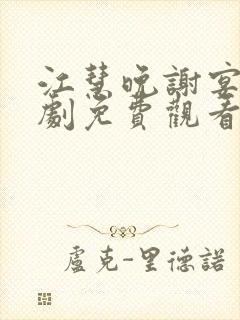 江慧晚謝宴
劇免費觀看
盧克-里德諾